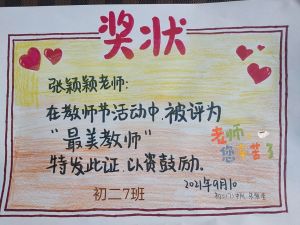 奖状
张颖颖老师:
在教师节活动中,被评为
“最美教师”
老师
您辛苦了
特发此证,以资鼓励.
初二7班
2021年9月10